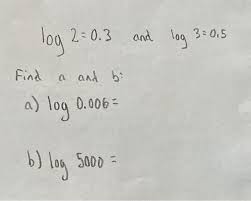 log 2=0.3 and log 3=0.5
Find a and b:
a) log 0.006=
b) log 5000 =